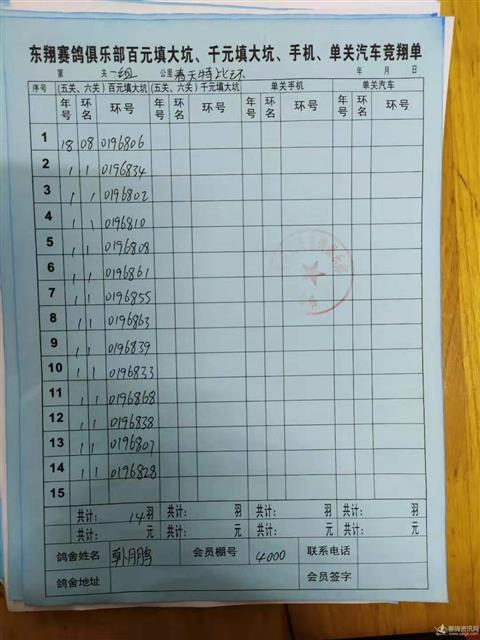 东翔赛鸽俱乐部百元填大坑、千元填大坑、手机、单关汽车竞翔单
第 关 一组 公里 春天特比环 年 月 日
序号 (五关、六关)百元填大坑 (五关、六关)千元填大坑 单关手机 单关汽车
年号 环名 环号 年号 环名 环号 年号 环名 环号 年号 环名 环号
1 18 08 0196806
2 1 1 0196834
3 1 1 0196802
4 1 1 0196810
5 1 1 0196808
6 1 1 0196861
7 1 1 0196855
8 1 1 0196863
9 1 1 0196839
10 1 1 0196833
11 1 1 0196868
12 1 1 0196838
13 1 1 0196807
14 1 1 0196828
15
共计: 14羽 共计: 羽 共计: 羽 共计: 羽
共计: 元 共计: 元 共计: 元 共计: 元
鸽舍姓名 韩月鹏 会员棚号 4000 联系电话
鸽舍地址 会员签字
赛鸽资讯网